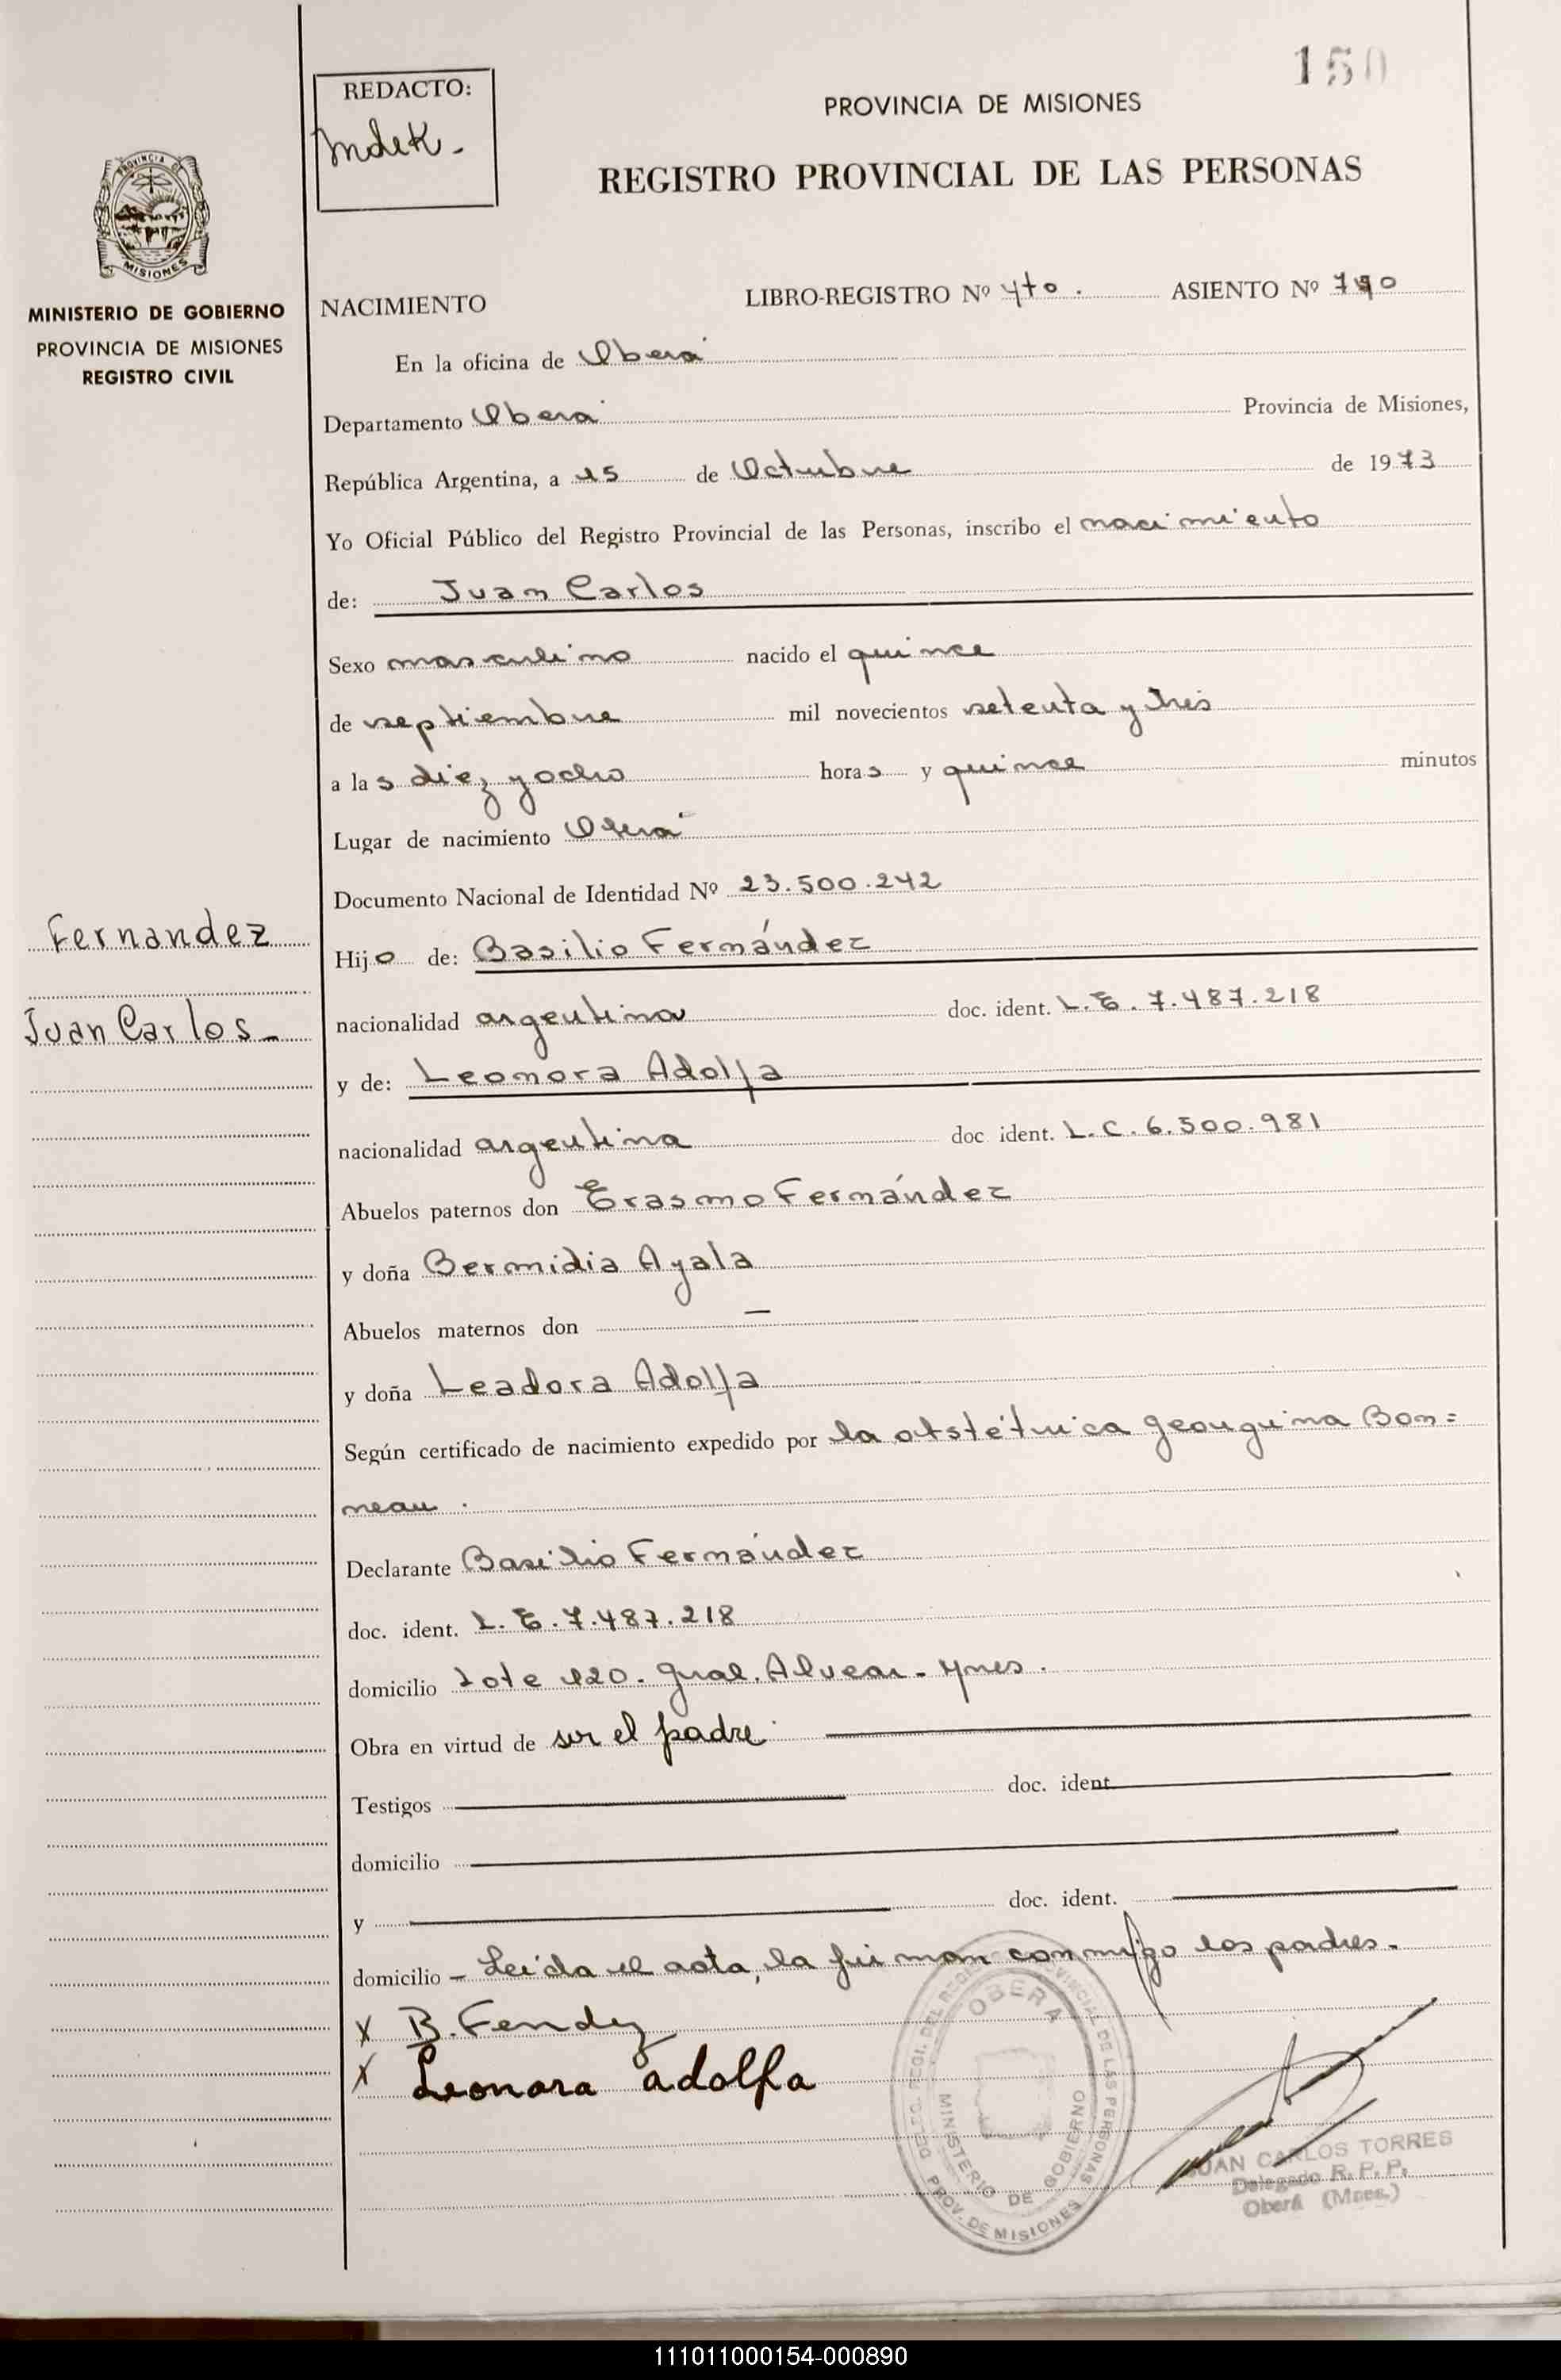 150
REDACTO:
PROVINCIA DE MISIONES
REGISTRO PROVINCIAL DE LAS PERSONAS
PROVINCIA DE
MISIONES
MINISTERIO DE GOBIERNO
PROVINCIA DE MISIONES
REGISTRO CIVIL
NACIMIENTO LIBRO-REGISTRO Nº 4to. ASIENTO Nº 790
En la oficina de Oberá
Departamento Oberá Provincia de Misiones,
República Argentina, a 15 de Octubre de 1973
Yo Oficial Público del Registro Provincial de las Personas, inscribo el nacimiento
de: Juan Carlos
Sexo masculino nacido el quince
de septiembre mil novecientos setenta y tres
a las diez y ocho horas y quince minutos
Lugar de nacimiento Oberá
Documento Nacional de Identidad Nº 23.500.242
Fernandez
Hijo de: Basilio Fernández
Juan Carlos_
nacionalidad argentina doc. ident. L.E. 7.487.218
y de: Leonora Adolfa
nacionalidad argentina doc ident. L.C. 6.500.981
Abuelos paternos don Erasmo Fernández
y doña Bermidia Ayala
Abuelos maternos don —
y doña Leadora Adolfa
Según certificado de nacimiento expedido por la obstétrica Georguina Bon=
neau.
Declarante Basilio Fernández
doc. ident. L.E. 7.487.218
domicilio Lote 120. Gral. Alvear-
Obra en virtud de ser el padre.
Testigos doc. ident
domicilio
y doc. ident.
domicilio – Leida el acta, la firman conmigo los padres.
X B. Fendez
X Leonora adolfa
OBERA
MINISTERIO DE GOBIERNO
PROV. DE MISIONES
JUAN CARLOS TORRES
Delegado R. P. P.
Oberá (Mnes.)
111011000154-000890